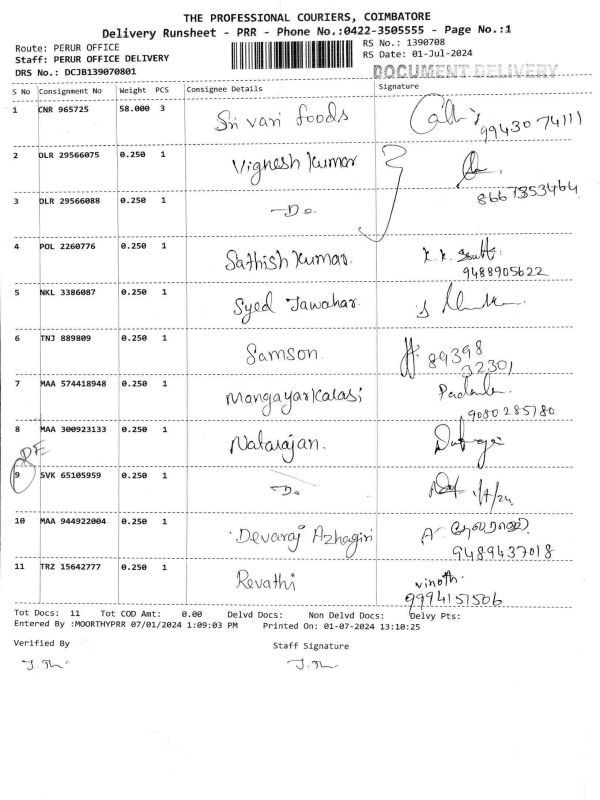 THE PROFESSIONAL COURIERS, COIMBATORE
Delivery Runsheet - PRR - Phone No.:0422-3505555 - Page No.:1
Route: PERUR OFFICE RS No.: 1390708
Staff: PERUR OFFICE DELIVERY RS Date: 01-Jul-2024
DRS No.: DCJB139070801 DOCUMENT DELIVERY
S No Consignment No Weight PCS Consignee Details Signature
1 CNR 965725 58.000 3 Sri vari foods
99430 74111
2 DLR 29566075 0.250 1 Vignesh Kumar
8667353464
3 DLR 29566088 0.250 1 -Do.
4 POL 2260776 0.250 1 Sathish Kumar.
9488905622
5 NKL 3386087 0.250 1 Syed Jawahar
6 TNJ 889809 0.250 1 Samson. 89398
32301
7 MAA 574418948 0.250 1 Mangayarkalasi
9080285780
8 MAA 300923133 0.250 1 Natarajan.
9 SVK 65105959 0.250 1 -Do 1/7/24
10 MAA 944922004 0.250 1 Devaraj Azhagiri
9489437018
11 TRZ 15642777 0.250 1 Revathi vinoth.
9994151506
Tot Docs: 11 Tot COD Amt: 0.00 Delvd Docs: Non Delvd Docs: Delvy Pts:
Entered By :MOORTHYPRR 07/01/2024 1:09:03 PM Printed On: 01-07-2024 13:10:25
Verified By Staff Signature